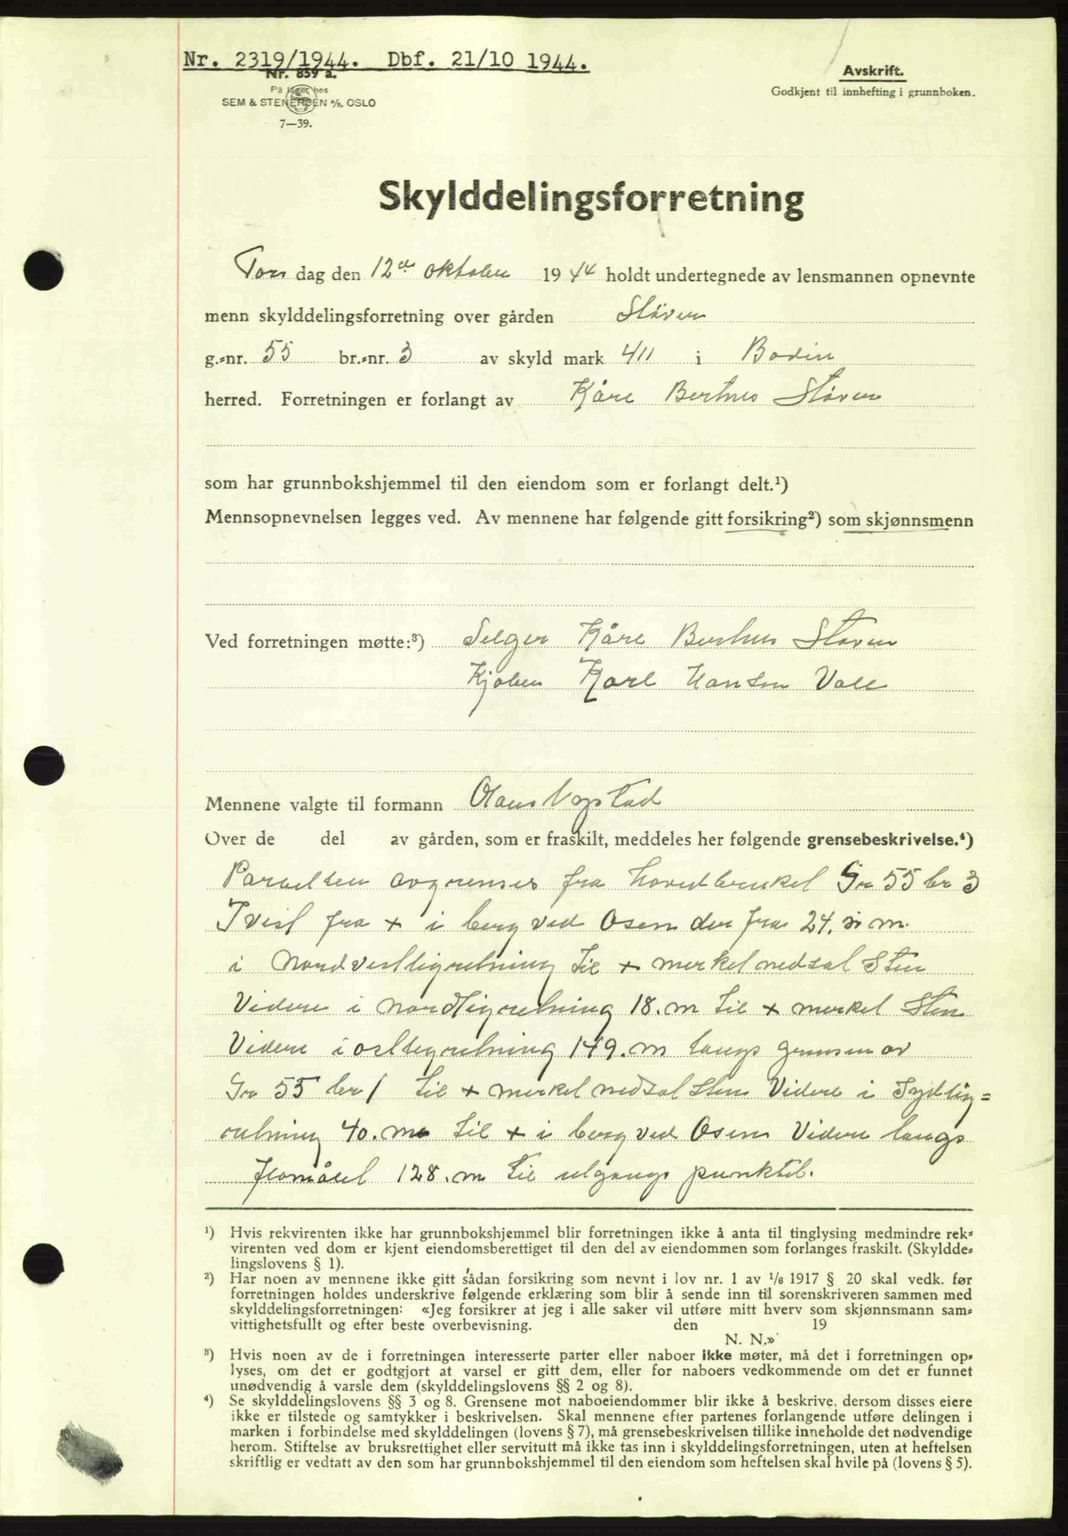 Nr. 2319/1944. Dbf. 21/10 1944.
Nr. 859 a.
På lager hos
SEM & STENERSEN A/S. OSLO
7—39.
Avskrift.
Godkjent til innhefting i grunnboken.
Skylddelingsforretning
Tors dag den 12te oktober 19 44 holdt undertegnede av lensmannen opnevnte
menn skylddelingsforretning over gården Støver
g.-nr. 55 br.-nr. 3 av skyld mark 4.11 i Bodin
herred. Forretningen er forlangt av Kåre Berthus Støver
som har grunnbokshjemmel til den eiendom som er forlangt delt.¹)
Mennsopnevnelsen legges ved. Av mennene har følgende gitt forsikring²) som skjønnsmenn
Ved forretningen møtte:³) Selger Kåre Berthus Støver
Kjøber Karl Hansen Valle
Mennene valgte til formann Olaus
Over de del av gården, som er fraskilt, meddeles her følgende grensebeskrivelse.⁴)
Parsellen avgrenses fra hovedbruket Gr 55 br 3
I vest fra + i berg ved Osen der fra 24. m.
i Nordvestligretning til + merket nedsat Sten
Videre i nordligretning 18. m til + merket Sten
Videre i ostligretning 149. m langs grensen av
Gr 55 br 1 til + merket nedsat Sten Videre i Sydlig=
retning 40. m til + i berg ved Osen Videre langs
flomålet 128. m til utgangs punktet.
¹) Hvis rekvirenten ikke har grunnbokshjemmel blir forretningen ikke å anta til tinglysing medmindre rek-
virenten ved dom er kjent eiendomsberettiget til den del av eiendommen som forlanges fraskilt. (Skyldde-
lingslovens § 1).
²) Har noen av mennene ikke gitt sådan forsikring som nevnt i lov nr. 1 av 1/6 1917 § 20 skal vedk. før
forretningen holdes underskrive følgende erklæring som blir å sende inn til sorenskriveren sammen med
skylddelingsforretningen: «Jeg forsikrer at jeg i alle saker vil utføre mitt hverv som skjønnsmann sam-
vittighetsfullt og efter beste overbevisning. den 19
N. N.»
³) Hvis noen av de i forretningen interesserte parter eller naboer ikke møter, må det i forretningen op-
lyses, om det er godtgjort at varsel er gitt dem, eller for naboers vedkommende om det er funnet
unødvendig å varsle dem (skylddelingslovens §§ 2 og 8).
⁴) Se skylddelingslovens §§ 3 og 8. Grensene mot naboeiendommer blir ikke å beskrive, dersom disses eiere
ikke er tilstede og samtykker i beskrivelsen. Skal mennene efter partenes forlangende utføre delingen i
marken i forbindelse med skylddelingen (lovens § 7), må grensebeskrivelsen tillike inneholde det nødvendige
herom. Stiftelse av bruksrettighet eller servitutt må ikke tas inn i skylddelingsforretningen, uten at heftelsen
skriftlig er vedtatt av den som har grunnbokshjemmel til den eiendom som heftelsen skal hvile på (lovens § 5).